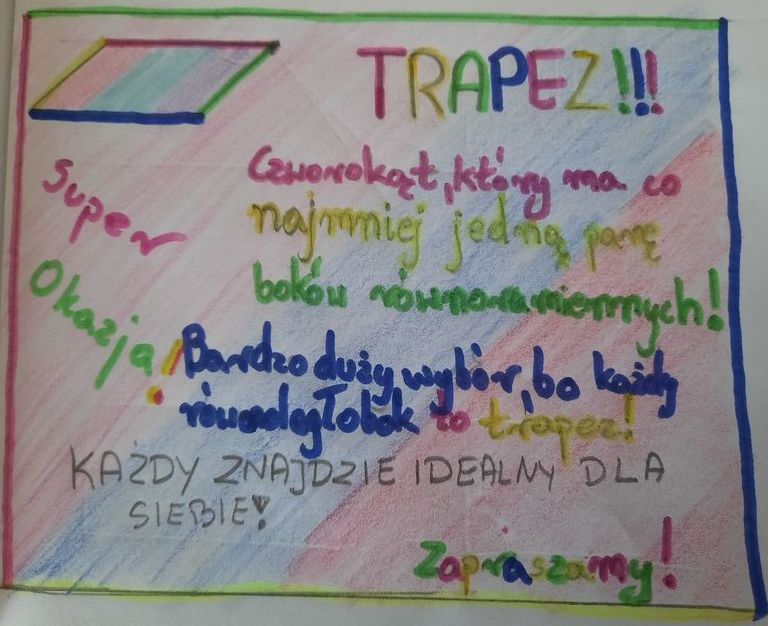 TRAPEZ!!!
Super
Okazja!
Czworokąt, który ma co
najmniej jedną parę
boków równoramiennych!
Bardzo duży wybór, bo każdy
równoległobok to trapez!
KAŻDY ZNAJDZIE IDEALNY DLA
SIEBIE!
Zapraszamy!